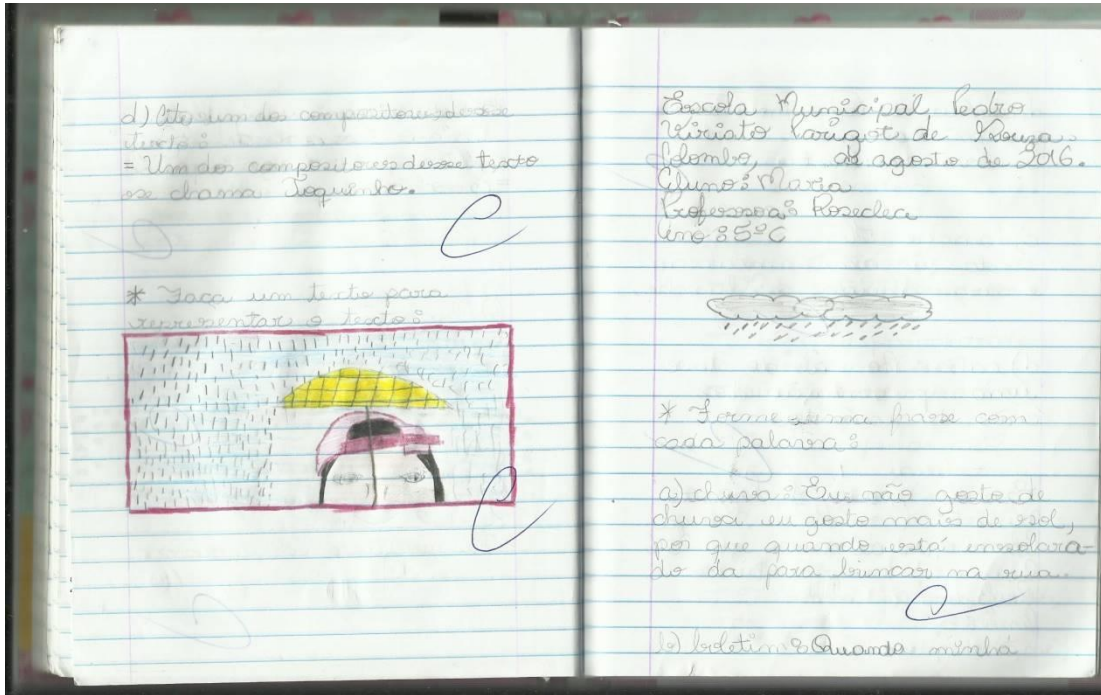 d) Cite um dos compositores desse
texto:
= Um dos compositores desse texto
se chama Toquinho.
* Faça um texto para
representar o texto:
Escola Municipal Pedro
Viriato Parigot de Souza.
Colombo, 02 agosto de 2016.
Aluno: Maria
Professora: Roseclea
Ano: 5º C
* Forme uma frase com
cada palavra:
a) chuva: Eu não gosto de
chuva eu gosto mais de sol,
por que quando está ensolara-
do da para brincar na rua.
b) boletim: Quando minha